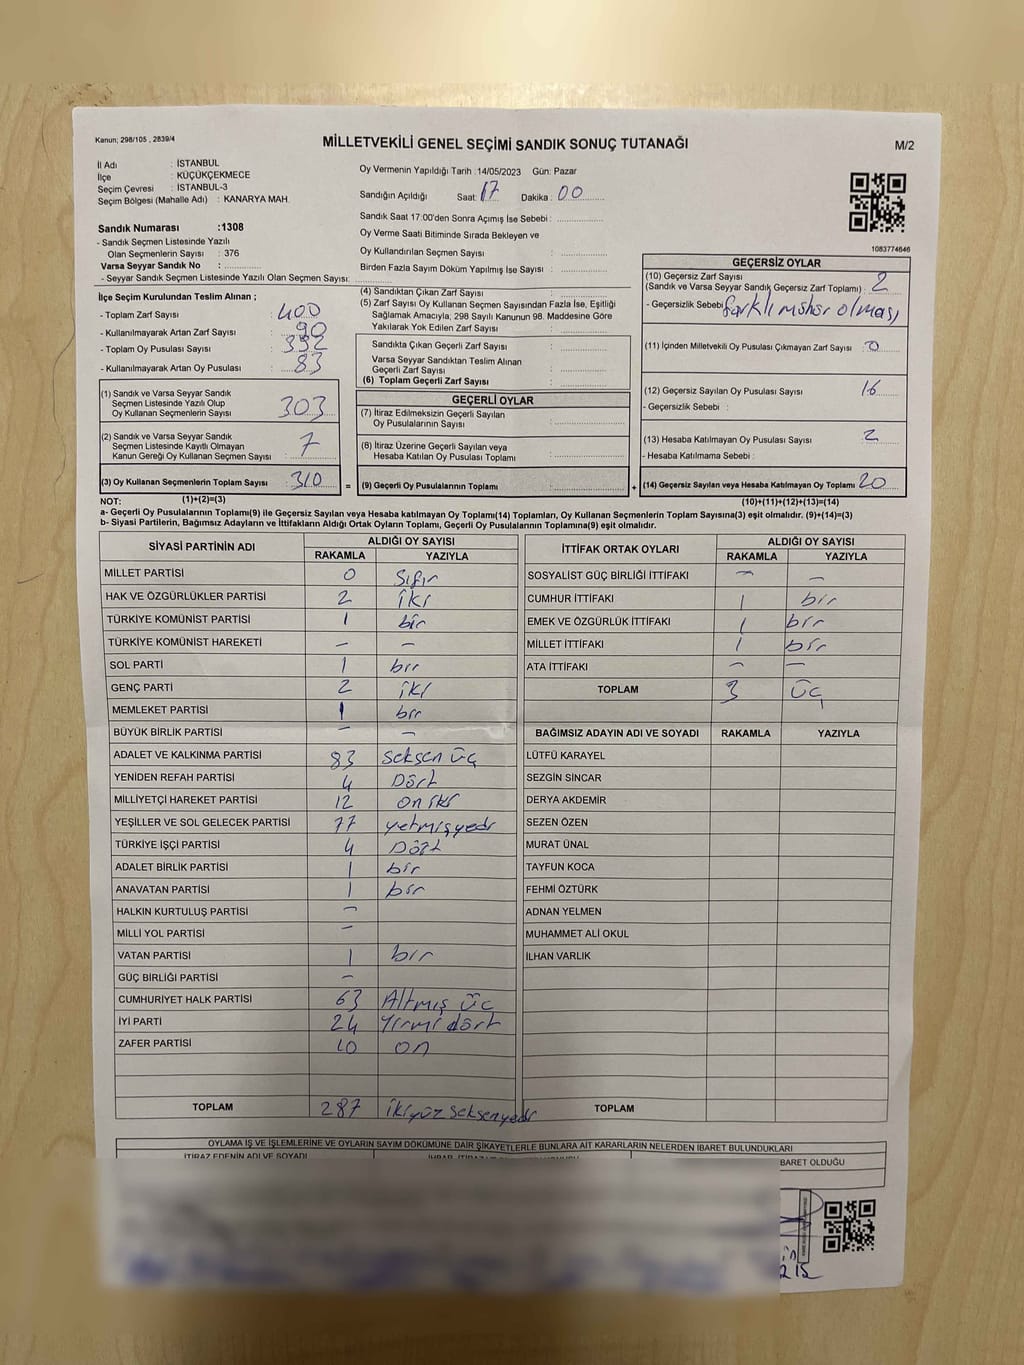 Kanun; 298/105 , 2839/4
MİLLETVEKİLİ GENEL SEÇİMİ SANDIK SONUÇ TUTANAĞI
M/2
İl Adı : İSTANBUL
İlçe : KÜÇÜKÇEKMECE
Seçim Çevresi : İSTANBUL-3
Seçim Bölgesi (Mahalle Adı) : KANARYA MAH.
Sandık Numarası :1308
- Sandık Seçmen Listesinde Yazılı
Olan Seçmenlerin Sayısı : 376
Varsa Seyyar Sandık No :
- Seyyar Sandık Seçmen Listesinde Yazılı Olan Seçmen Sayısı:
Oy Vermenin Yapıldığı Tarih :14/05/2023 Gün: Pazar
Sandığın Açıldığı Saat: 17 Dakika : 00
Sandık Saat 17:00'den Sonra Açımış İse Sebebi :
Oy Verme Saati Bitiminde Sırada Bekleyen ve
Oy Kullandırılan Seçmen Sayısı :
Birden Fazla Sayım Döküm Yapılmış İse Sayısı :
1083774646
İlçe Seçim Kurulundan Teslim Alınan ;
- Toplam Zarf Sayısı : 400
- Kullanılmayarak Artan Zarf Sayısı : 90
- Toplam Oy Pusulası Sayısı : 392
- Kullanılmayarak Artan Oy Pusulası : 83
(1) Sandık ve Varsa Seyyar Sandık
Seçmen Listesinde Yazılı Olup
Oy Kullanan Seçmenlerin Sayısı : 303
(2) Sandık ve Varsa Seyyar Sandık
Seçmen Listesinde Kayıtlı Olmayan
Kanun Gereği Oy Kullanan Seçmen Sayısı : 7
(3) Oy Kullanan Seçmenlerin Toplam Sayısı : 310
(4) Sandıktan Çıkan Zarf Sayısı :
(5) Zarf Sayısı Oy Kullanan Seçmen Sayısından Fazla İse, Eşitliği
Sağlamak Amacıyla, 298 Sayılı Kanunun 98. Maddesine Göre
Yakılarak Yok Edilen Zarf Sayısı :
Sandıkta Çıkan Geçerli Zarf Sayısı :
Varsa Seyyar Sandıktan Teslim Alınan
Geçerli Zarf Sayısı :
(6) Toplam Geçerli Zarf Sayısı :
GEÇERLİ OYLAR
(7) İtiraz Edilmeksizin Geçerli Sayılan
Oy Pusulalarının Sayısı :
(8) İtiraz Üzerine Geçerli Sayılan veya
Hesaba Katılan Oy Pusulası Toplamı :
= (9) Geçerli Oy Pusulalarının Toplamı :
GEÇERSİZ OYLAR
(10) Geçersiz Zarf Sayısı
(Sandık ve Varsa Seyyar Sandık Geçersiz Zarf Toplamı) : 2
- Geçersizlik Sebebi : farklı mühür olması
(11) İçinden Milletvekili Oy Pusulası Çıkmayan Zarf Sayısı : 0
(12) Geçersiz Sayılan Oy Pusulası Sayısı : 16
- Geçersizlik Sebebi :
(13) Hesaba Katılmayan Oy Pusulası Sayısı : 2
- Hesaba Katılmama Sebebi :
+ (14) Geçersiz Sayılan veya Hesaba Katılmayan Oy Toplamı : 20
NOT: (1)+(2)=(3) (10)+(11)+(12)+(13)=(14)
a- Geçerli Oy Pusulalarının Toplamı(9) ile Geçersiz Sayılan veya Hesaba katılmayan Oy Toplamı(14) Toplamları, Oy Kullanan Seçmenlerin Toplam Sayısına(3) eşit olmalıdır. (9)+(14)=(3)
b- Siyasi Partilerin, Bağımsız Adayların ve İttifakların Aldığı Ortak Oyların Toplamı, Geçerli Oy Pusulalarının Toplamına(9) eşit olmalıdır.
SİYASİ PARTİNİN ADI ALDIĞI OY SAYISI
RAKAMLA YAZIYLA
MİLLET PARTİSİ 0 Sıfır
HAK VE ÖZGÜRLÜKLER PARTİSİ 2 iki
TÜRKİYE KOMÜNİST PARTİSİ 1 bir
TÜRKİYE KOMÜNİST HAREKETİ — —
SOL PARTİ 1 bir
GENÇ PARTİ 2 iki
MEMLEKET PARTİSİ 1 bir
BÜYÜK BİRLİK PARTİSİ — —
ADALET VE KALKINMA PARTİSİ 83 seksen üç
YENİDEN REFAH PARTİSİ 4 Dört
MİLLİYETÇİ HAREKET PARTİSİ 12 on iki
YEŞİLLER VE SOL GELECEK PARTİSİ 77 yetmişyedi
TÜRKİYE İŞÇİ PARTİSİ 4 Dört
ADALET BİRLİK PARTİSİ 1 bir
ANAVATAN PARTİSİ 1 bir
HALKIN KURTULUŞ PARTİSİ —
MİLLİ YOL PARTİSİ —
VATAN PARTİSİ 1 bir
GÜÇ BİRLİĞİ PARTİSİ —
CUMHURİYET HALK PARTİSİ 63 Altmış üç
İYİ PARTİ 24 Yirmi dört
ZAFER PARTİSİ 10 on
TOPLAM 287 ikiyüz seksenyedi
İTTİFAK ORTAK OYLARI ALDIĞI OY SAYISI
RAKAMLA YAZIYLA
SOSYALİST GÜÇ BİRLİĞİ İTTİFAKI — —
CUMHUR İTTİFAKI 1 bir
EMEK VE ÖZGÜRLÜK İTTİFAKI 1 bir
MİLLET İTTİFAKI 1 bir
ATA İTTİFAKI — —
TOPLAM 3 üç
BAĞIMSIZ ADAYIN ADI VE SOYADI RAKAMLA YAZIYLA
LÜTFÜ KARAYEL
SEZGİN SİNCAR
DERYA AKDEMİR
SEZEN ÖZEN
MURAT ÜNAL
TAYFUN KOCA
FEHMİ ÖZTÜRK
ADNAN YELMEN
MUHAMMET ALİ OKUL
İLHAN VARLIK
TOPLAM
OYLAMA İŞ VE İŞLEMLERİNE VE OYLARIN SAYIM DÖKÜMÜNE DAİR ŞİKAYETLERLE BUNLARA AİT KARARLARIN NELERDEN İBARET BULUNDUKLARI
İTİRAZ EDENİN ADI VE SOYADI
BARET OLDUĞU